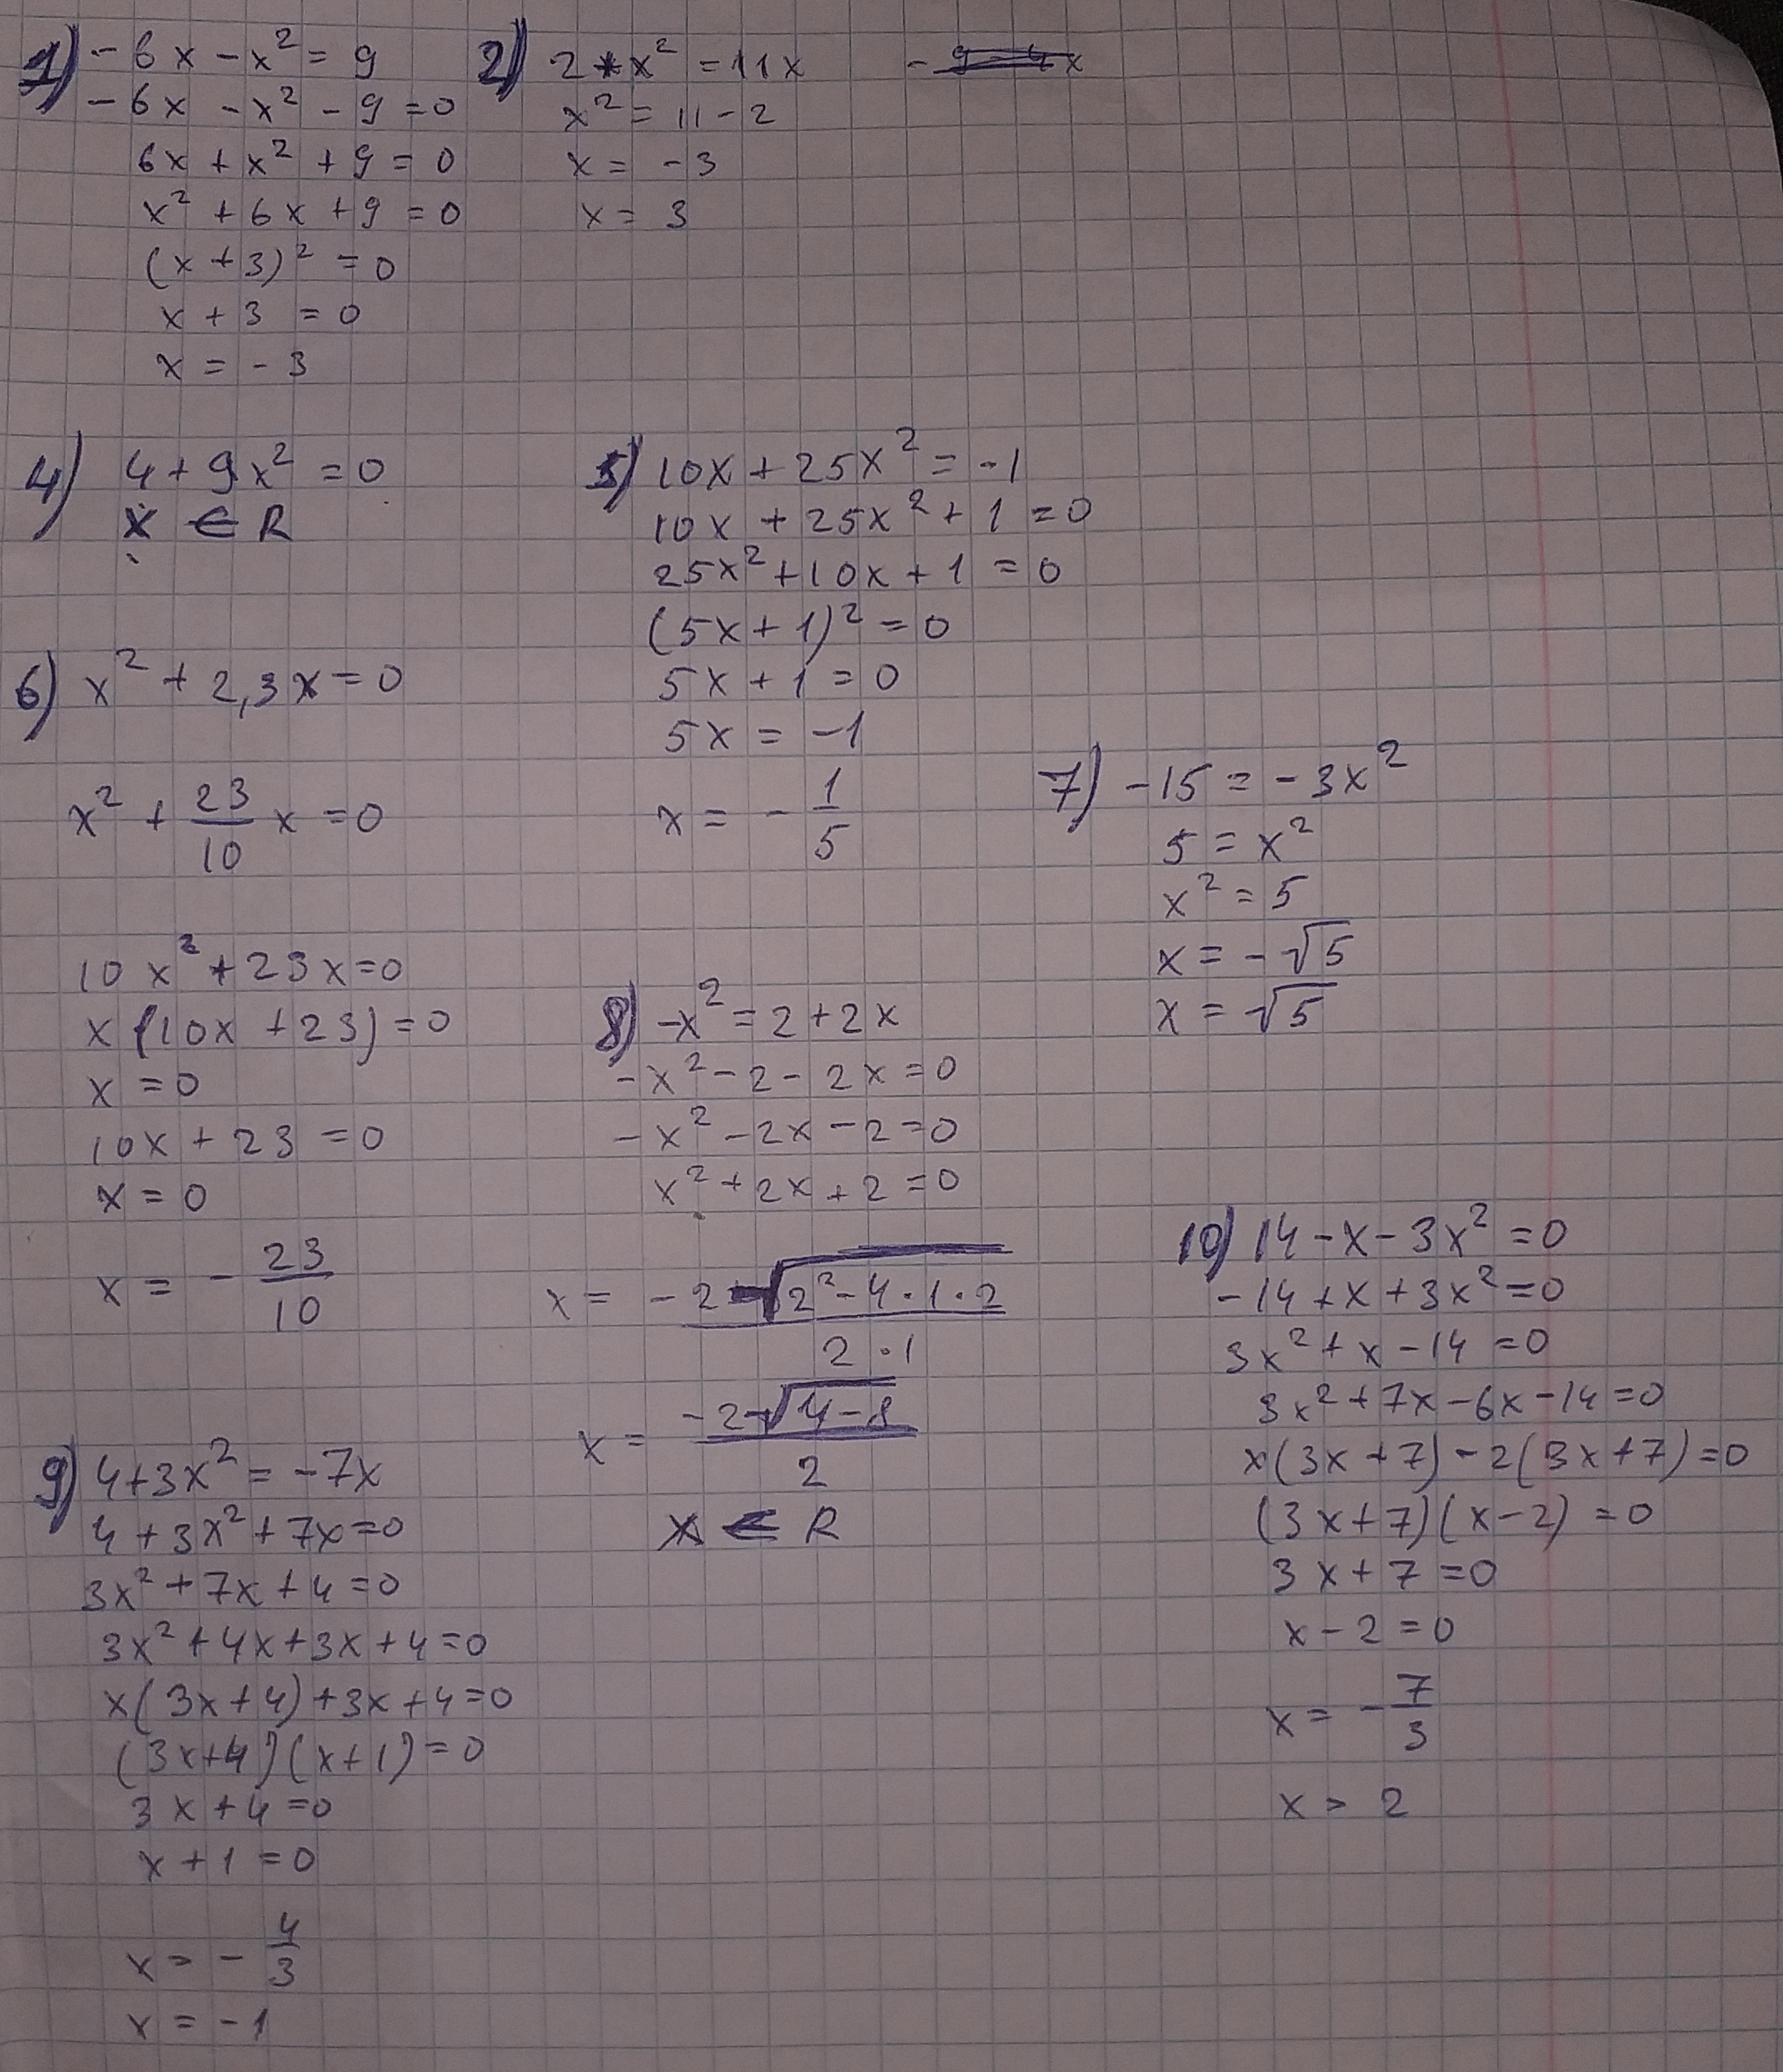 1) -6x - x² = 9
-6x - x² - 9 = 0
6x + x² + 9 = 0
x² + 6x + 9 = 0
(x + 3)² = 0
x + 3 = 0
x = -3
2) 2 + x² = 11x
x² = 11 - 2
x = -3
x = 3
4) 4 + 9x² = 0
x ∈ R
5) 10x + 25x² = -1
10x + 25x² + 1 = 0
25x² + 10x + 1 = 0
(5x + 1)² = 0
5x + 1 = 0
5x = -1
x = -1/5
6) x² + 2,3x = 0
x² + 23/10 x = 0
10x² + 23x = 0
x(10x + 23) = 0
x = 0
10x + 23 = 0
x = 0
x = -23/10
7) -15 = -3x²
5 = x²
x² = 5
x = -√5
x = √5
8) -x² = 2 + 2x
-x² - 2 - 2x = 0
-x² - 2x - 2 = 0
x² + 2x + 2 = 0
x = (-2 +- √(2² - 4·1·2))/(2·1)
x = (-2 +- √(4 - 8))/2
x ∈ R
9) 4 + 3x² = -7x
4 + 3x² + 7x = 0
3x² + 7x + 4 = 0
3x² + 4x + 3x + 4 = 0
x(3x + 4) + 3x + 4 = 0
(3x + 4)(x + 1) = 0
3x + 4 = 0
x + 1 = 0
x = -4/3
x = -1
10) 14 - x - 3x² = 0
-14 + x + 3x² = 0
3x² + x - 14 = 0
3x² + 7x - 6x - 14 = 0
x(3x + 7) - 2(3x + 7) = 0
(3x + 7)(x - 2) = 0
3x + 7 = 0
x - 2 = 0
x = -7/3
x = 2